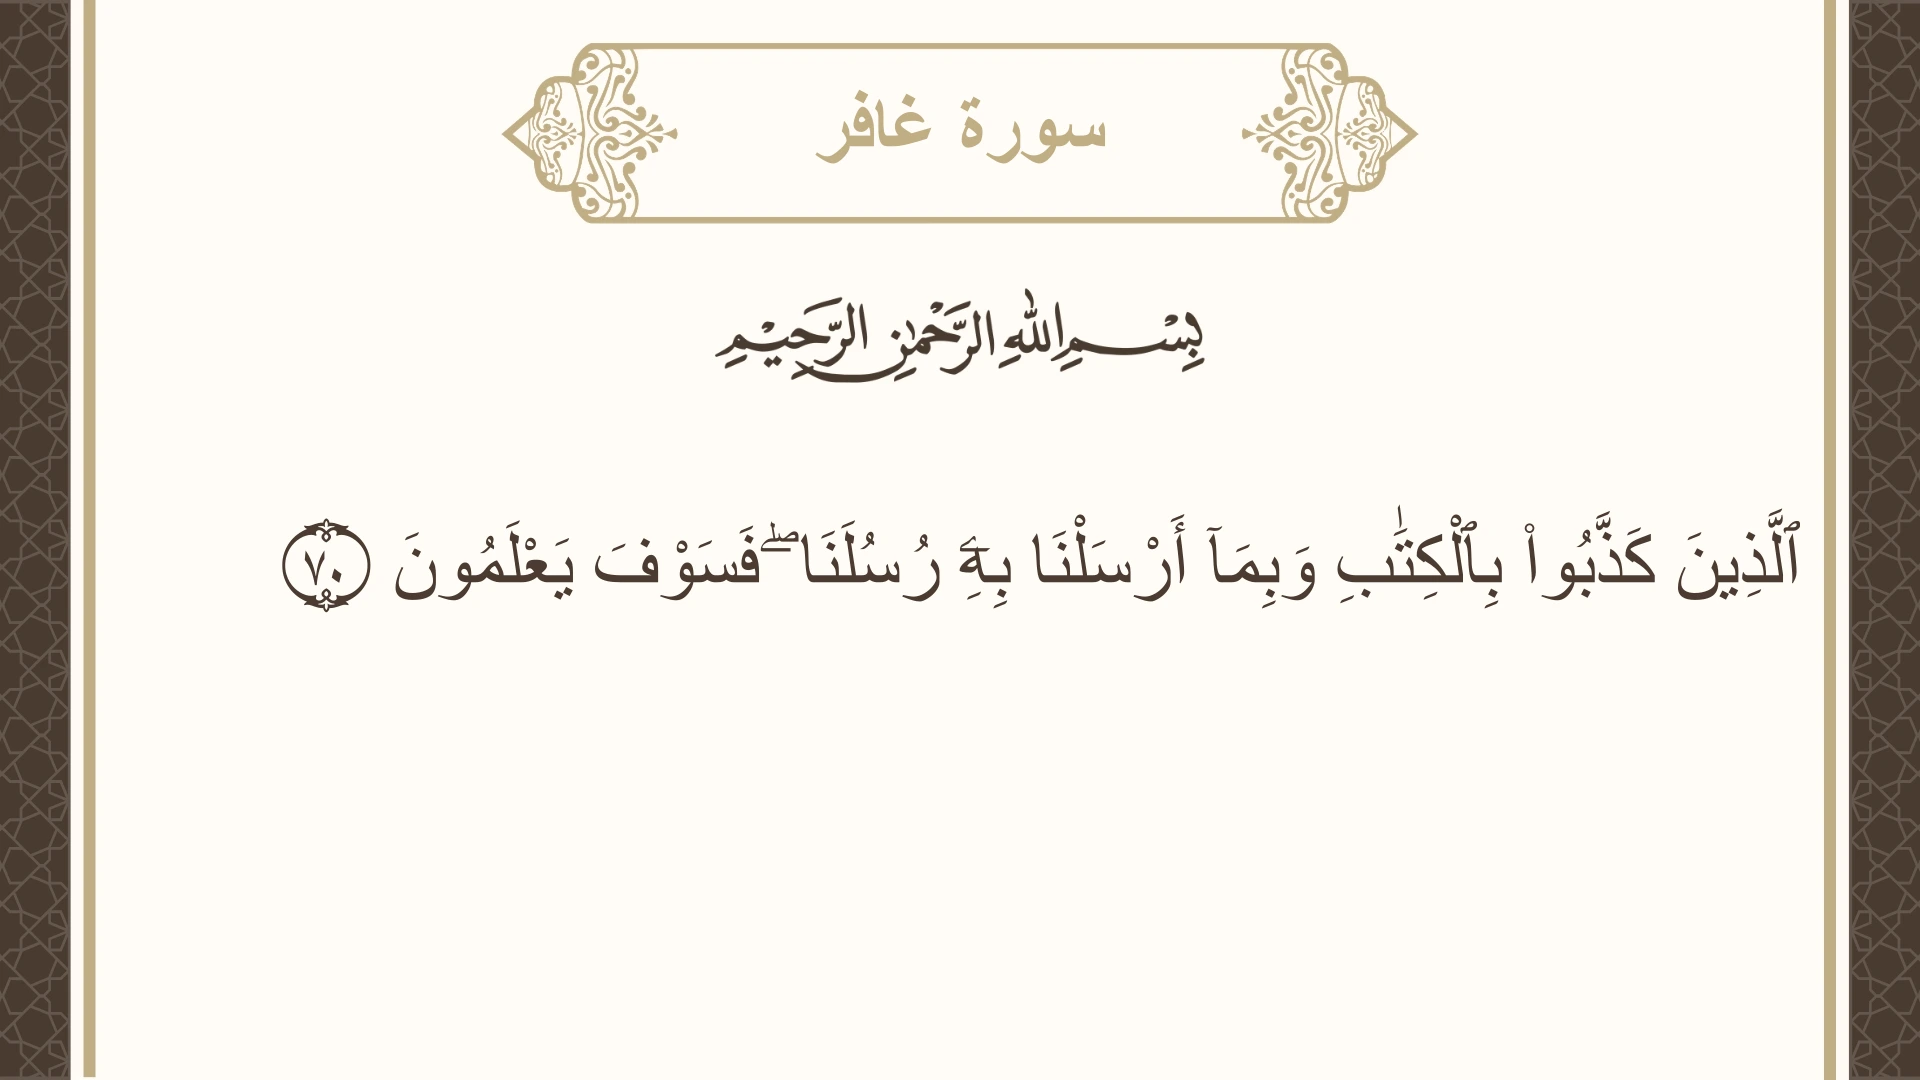 سورة غافر
بِسْمِ اللهِ الرَّحْمٰنِ الرَّحِيْمِ
ٱلَّذِينَ كَذَّبُوا۟ بِٱلْكِتَٰبِ وَبِمَآ أَرْسَلْنَا بِهِۦٓ رُسُلَنَا ۖ فَسَوْفَ يَعْلَمُونَ ٧٠